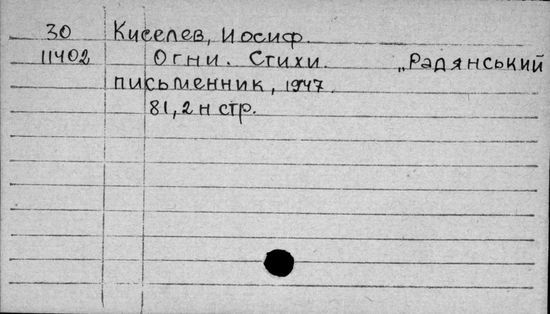 30 Киселев, Иосиф.
11402 Огни. Стихи. „Радянський
письменник, 1947.
81, 2 н стр.